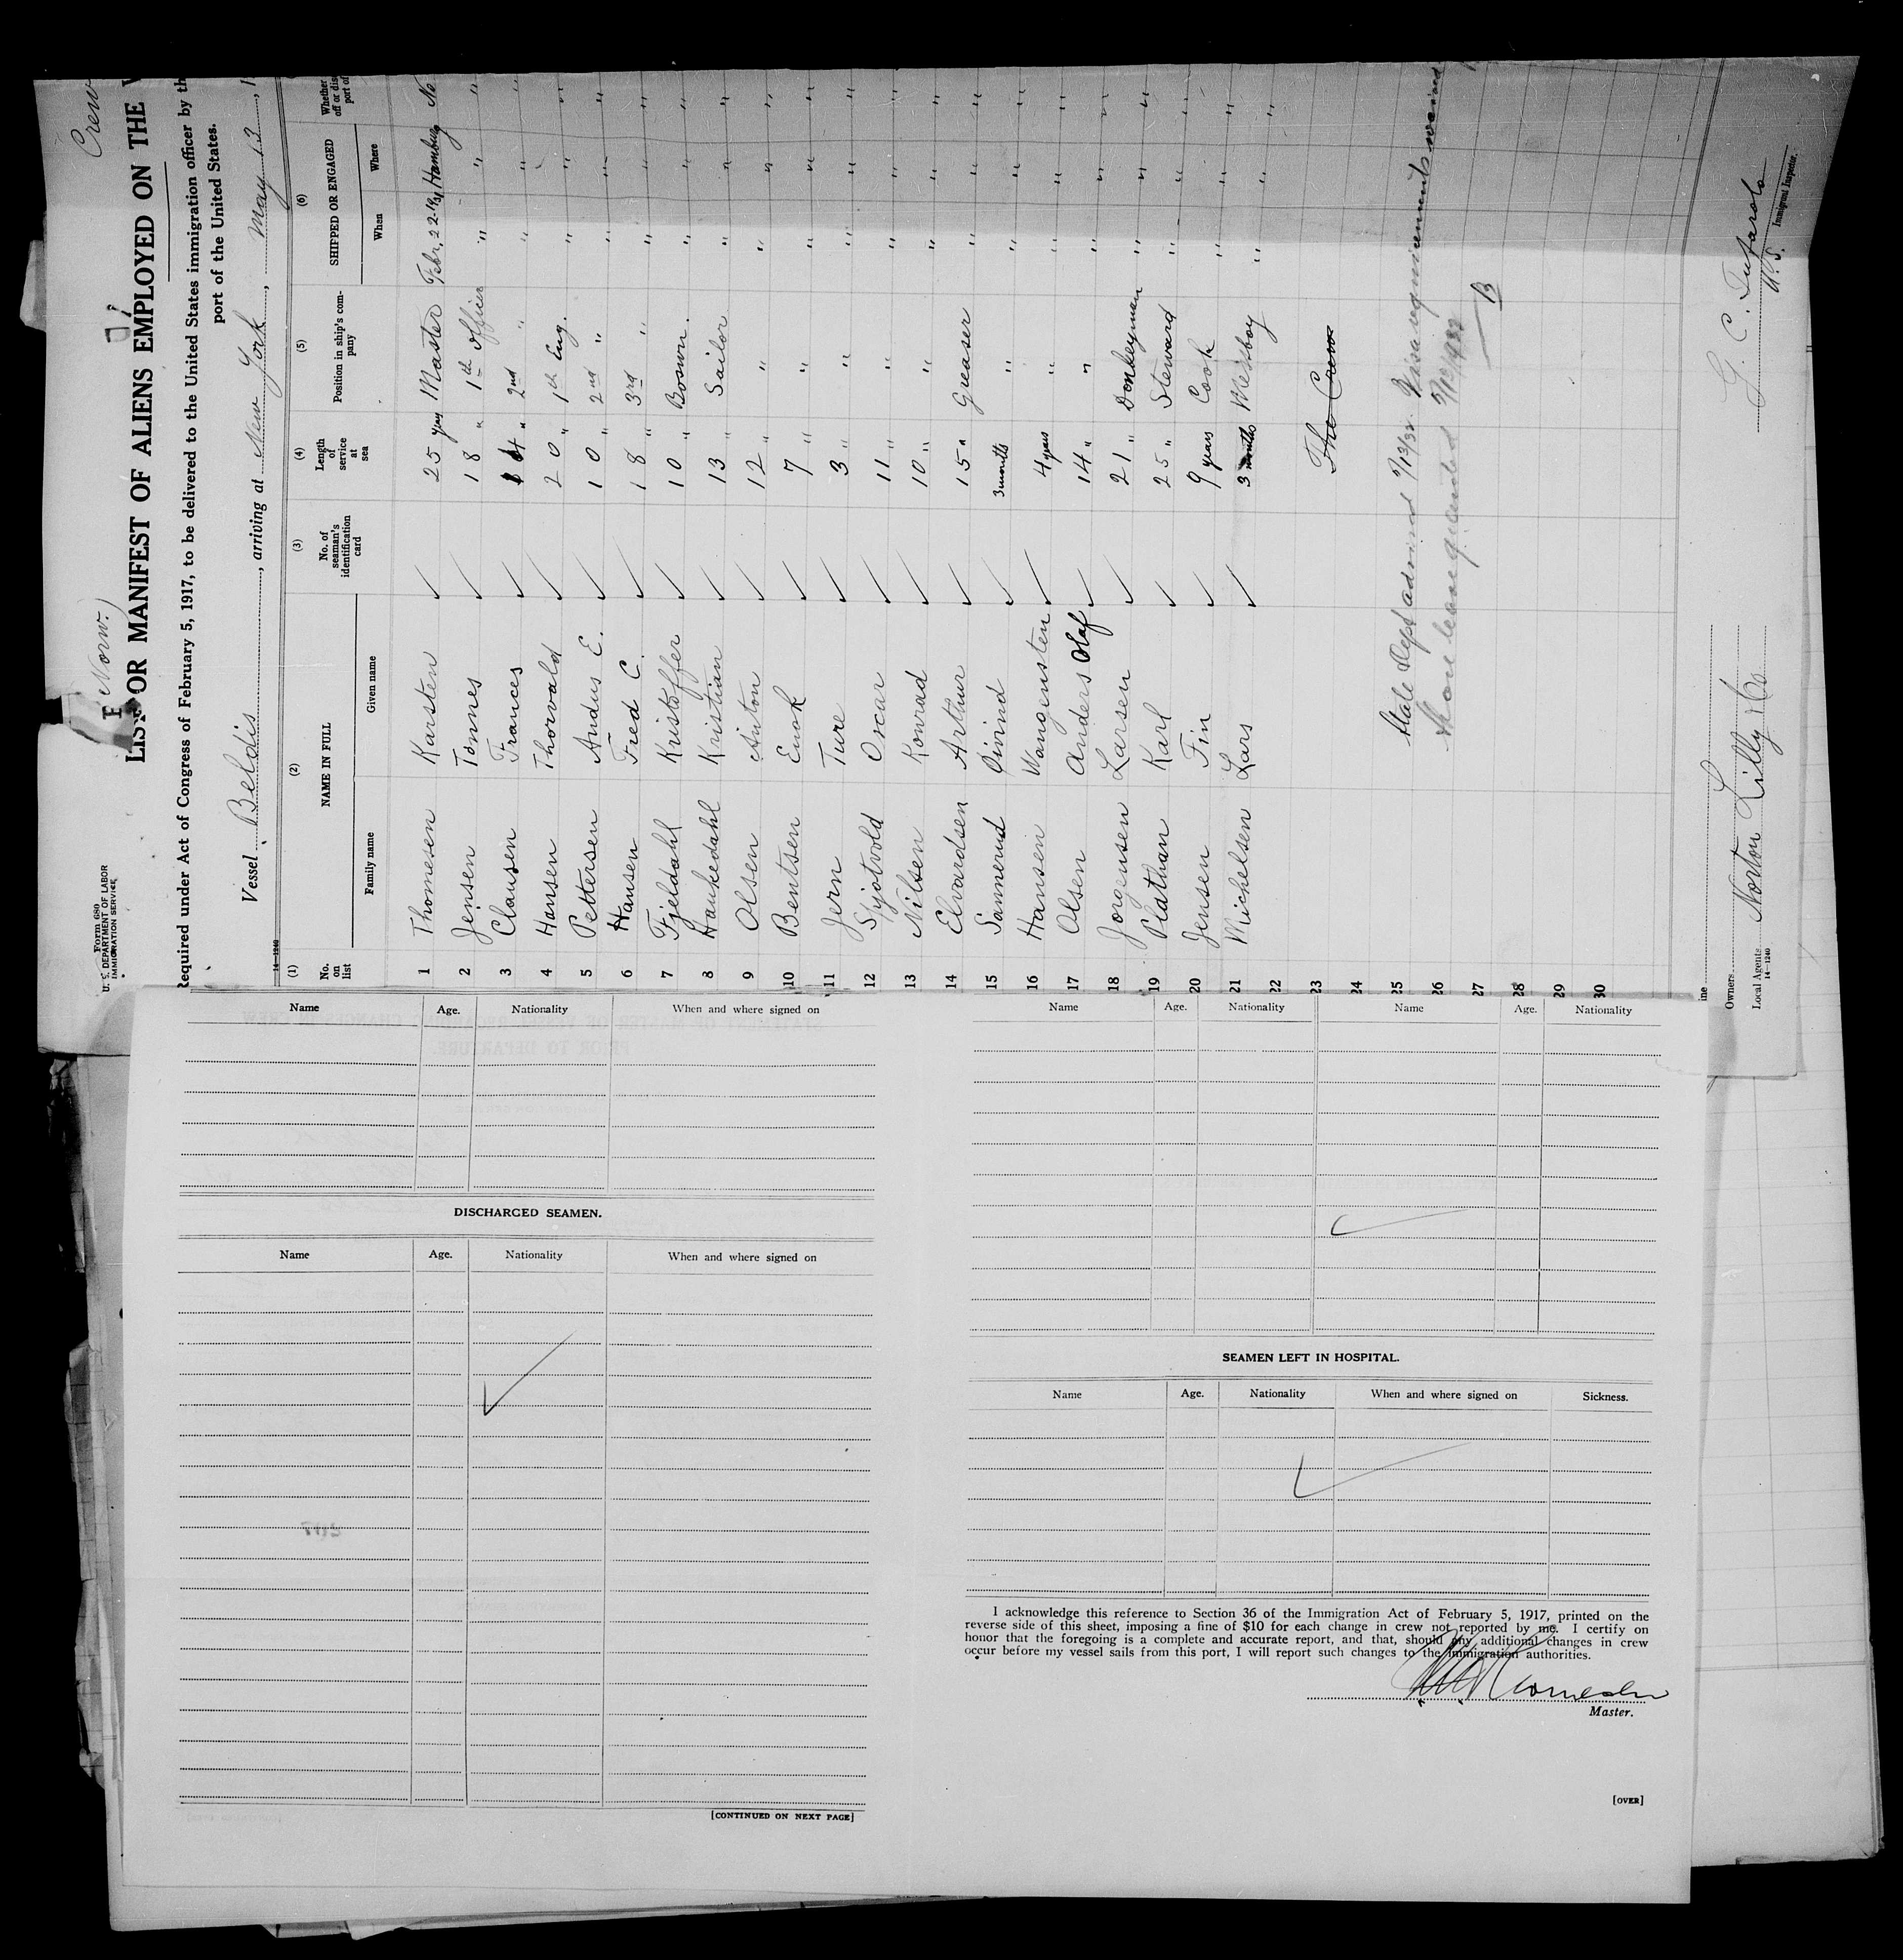 Form 680
U. S. DEPARTMENT OF LABOR
IMMIGRATION SERVICE
Norw.)
Crew
LIST OR MANIFEST OF ALIENS EMPLOYED ON THE
Required under Act of Congress of February 5, 1917, to be delivered to the United States immigration officer by th
port of the United States.
Vessel Beldis, arriving at New York, May 13, 1
14—1240
(1) (2) (3) (4) (5) (6)
No. on list NAME IN FULL No. of seaman's identification card Length of service at sea Position in ship's company SHIPPED OR ENGAGED Whether
Family name Given name When Where
1 Thomesen Karsten ✓ 25 years Master Febr. 22-1932 Hamburg No
2 Jensen Tonnes ✓ 18 " 1th Officer " " "
3 Clausen Frances ✓ 14 " 2nd " " " "
4 Hansen Thorvald ✓ 20 " 1th Eng. " " "
5 Pettersen Andus E. ✓ 10 " 2nd " " " "
6 Hansen Fred C. ✓ 18 " 3rd " " " "
7 Fjeldahl Kristoffer ✓ 10 " Boswn. " " "
8 Haukedahl Kristian ✓ 13 " Sailor " " "
9 Olsen Anton ✓ 12 " " " " "
10 Bentsen Enok ✓ 7 " " " " "
11 Jern Ture ✓ 3 " " " " "
12 Stjotvold Oscar ✓ 11 " " " " "
13 Nilsen Konrad ✓ 10 " " " " "
14 Elvardsen Arthur ✓ 15 " Greaser " " "
15 Sannerud Øivind ✓ 3 months " " " "
16 Hansen Wangensten ✓ 4 years " " " "
17 Olsen Anders Olaf ✓ 14 " " " " "
18 Jorgensen Larsen ✓ 21 " Donkeyman " " "
19 Plathan Karl ✓ 25 " Steward " " "
20 Jensen Fin ✓ 9 years Cook " " "
21 Michelsen Lars ✓ 3 months Messboy " " "
22
23 The Crew
24
25 State Dept advised 5/13/32 Visa requirements waived
26
27 B
28
29
30
Owners
Local Agents Norton Lilly & Co
14—1240
G. C.
U. S. Immigrant Inspector.
Name Age. Nationality When and where signed on
DISCHARGED SEAMEN.
Name Age. Nationality When and where signed on
✓
[CONTINUED ON NEXT PAGE]
Name Age. Nationality Name Age. Nationality
✓
SEAMEN LEFT IN HOSPITAL.
Name Age. Nationality When and where signed on Sickness.
✓
I acknowledge this reference to Section 36 of the Immigration Act of February 5, 1917, printed on the
reverse side of this sheet, imposing a fine of $10 for each change in crew not reported by me. I certify on
honor that the foregoing is a complete and accurate report, and that, should any additional changes in crew
occur before my vessel sails from this port, I will report such changes to the immigration authorities.
Master.
[OVER]